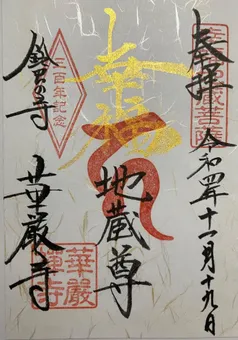 奉拝
令和四年十一月十九日
幸福
地蔵尊
三百年記念
鈴虫寺
華厳寺
華嚴
禅寺